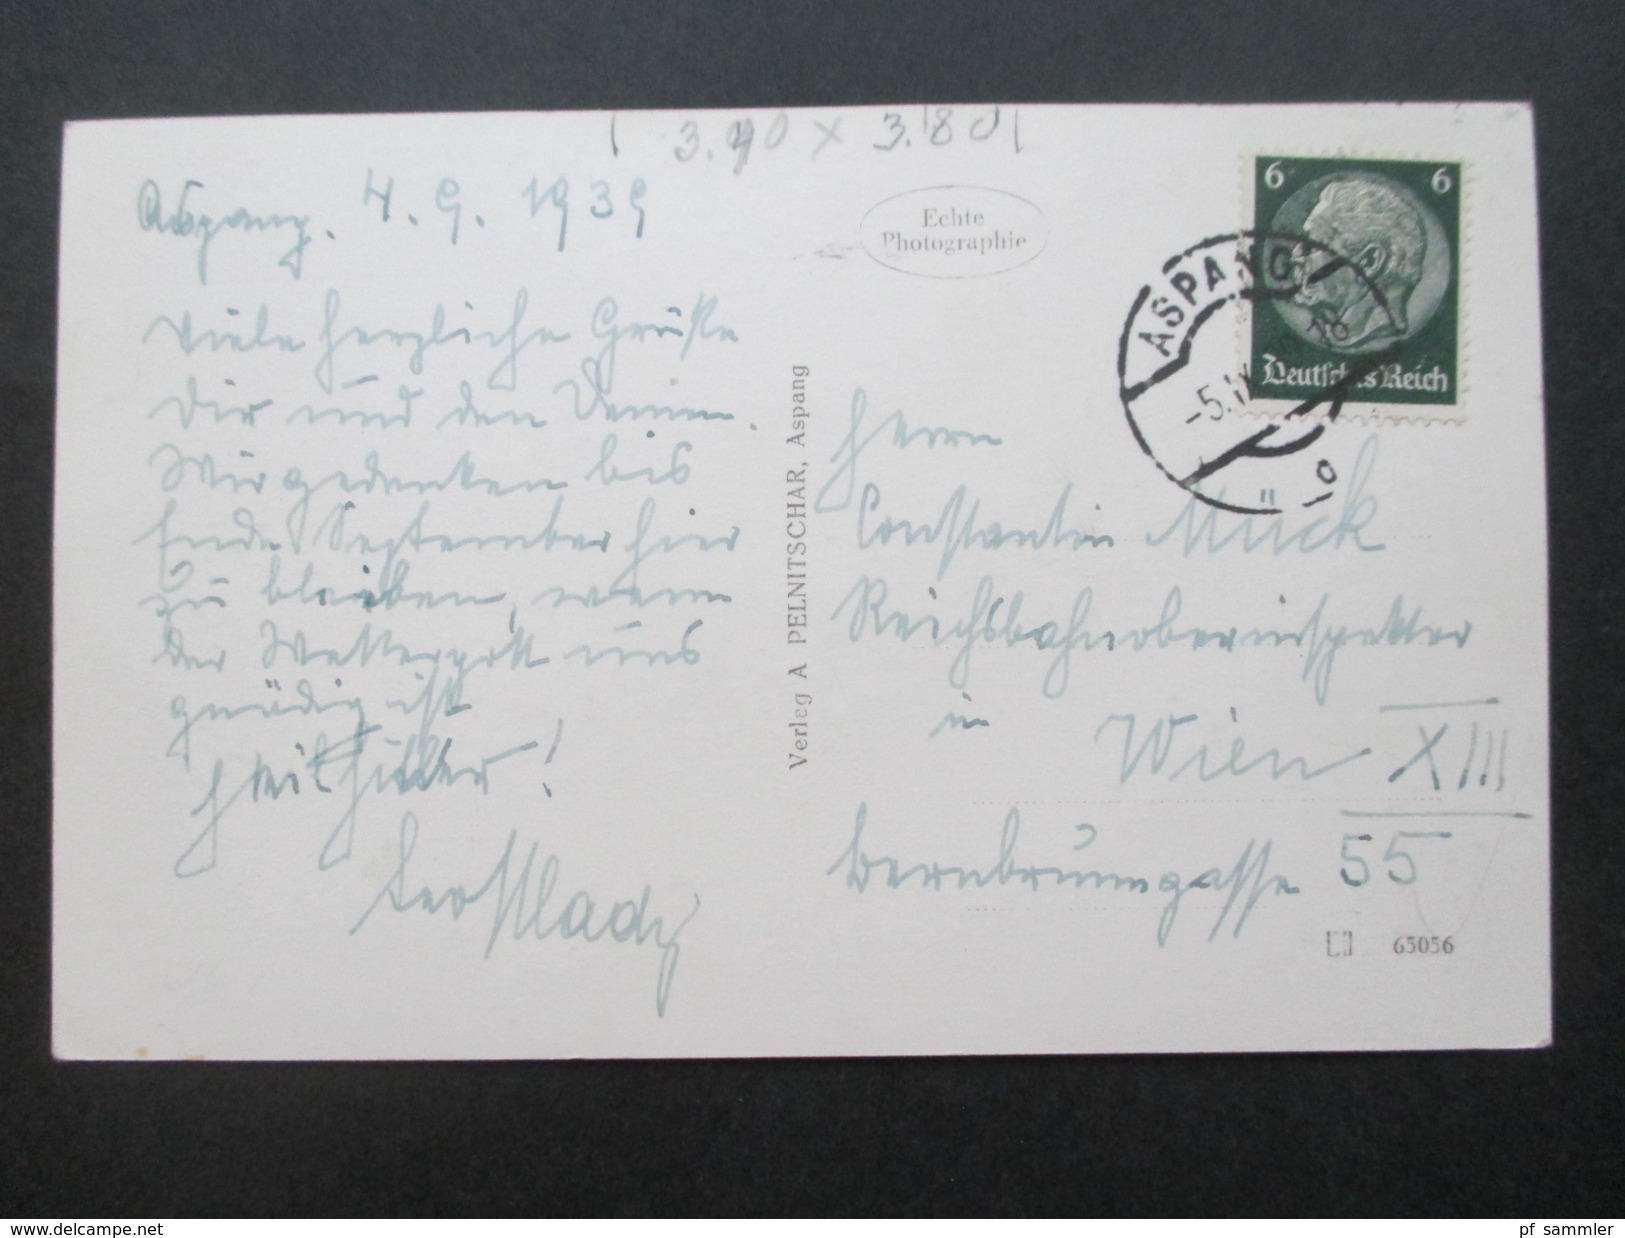 3.40 x 3.80
Aspang. 4. 9. 1939
Viele herzliche Grüße
Dir und den Deinen.
Wir gedenken bis
Ende September hier
zu bleiben, wenn
der Wettergott uns
gnädig ist
Heil Hitler!
Echte
Photographie
Verlag A PELNITSCHAR, Aspang
6 6
Deutsches Reich
ASPANG
-5.IX
Herrn
Constantin Muck
Reichsbahnoberinspektor
in Wien XIII
Bernbrunngasse 55
65056
www.delcampe.net
pf_sammler